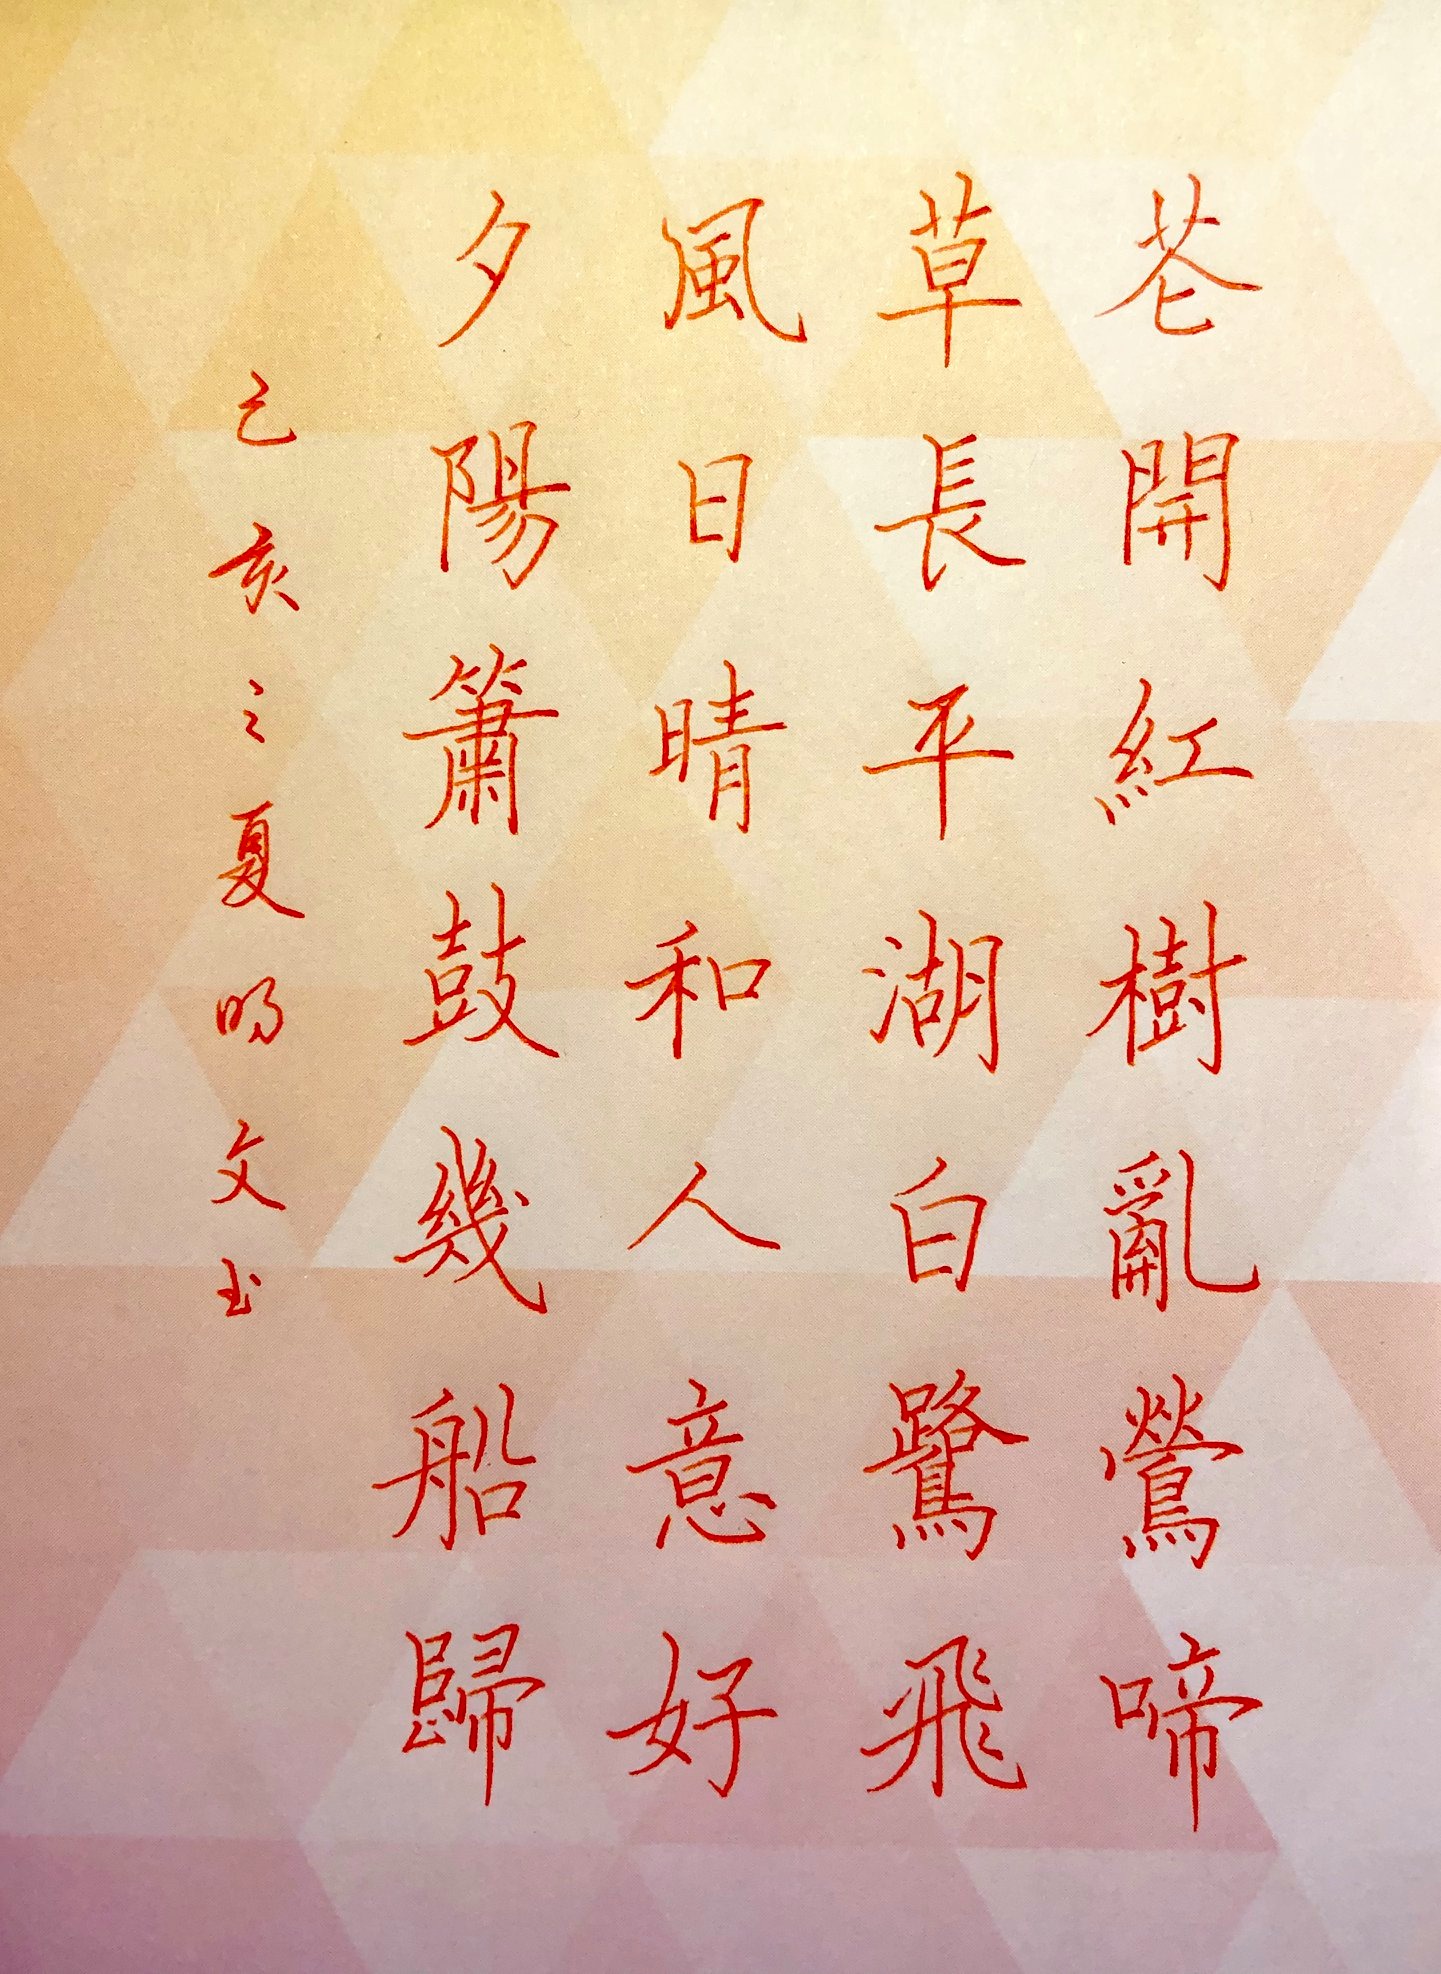 花開紅樹亂鶯啼
草長平湖白鷺飛
風日晴和人意好
夕陽簫鼓幾船歸
己亥之夏明文书